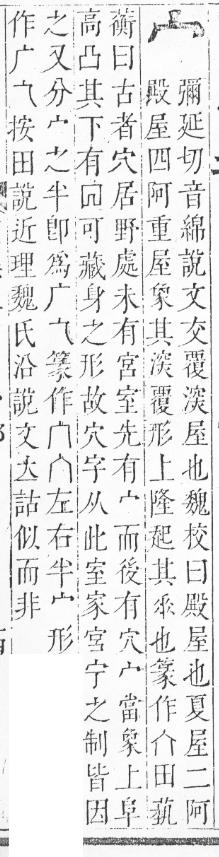 宀
彌延切音綿說文交覆深屋也魏校曰殿屋也夏屋二阿
殿屋四阿重屋象其深覆形上隆起其𠂹也篆作𠆢田藝
蘅曰古者穴居野處未有宮室先有宀而後有穴宀當象上阜
高凸其下有凹可藏身之形故穴字从此室家宮宁之制皆因
之又分宀之半卽爲广乁篆作左右半宀形
作广乁按田說近理魏氏沿說文詁似而非